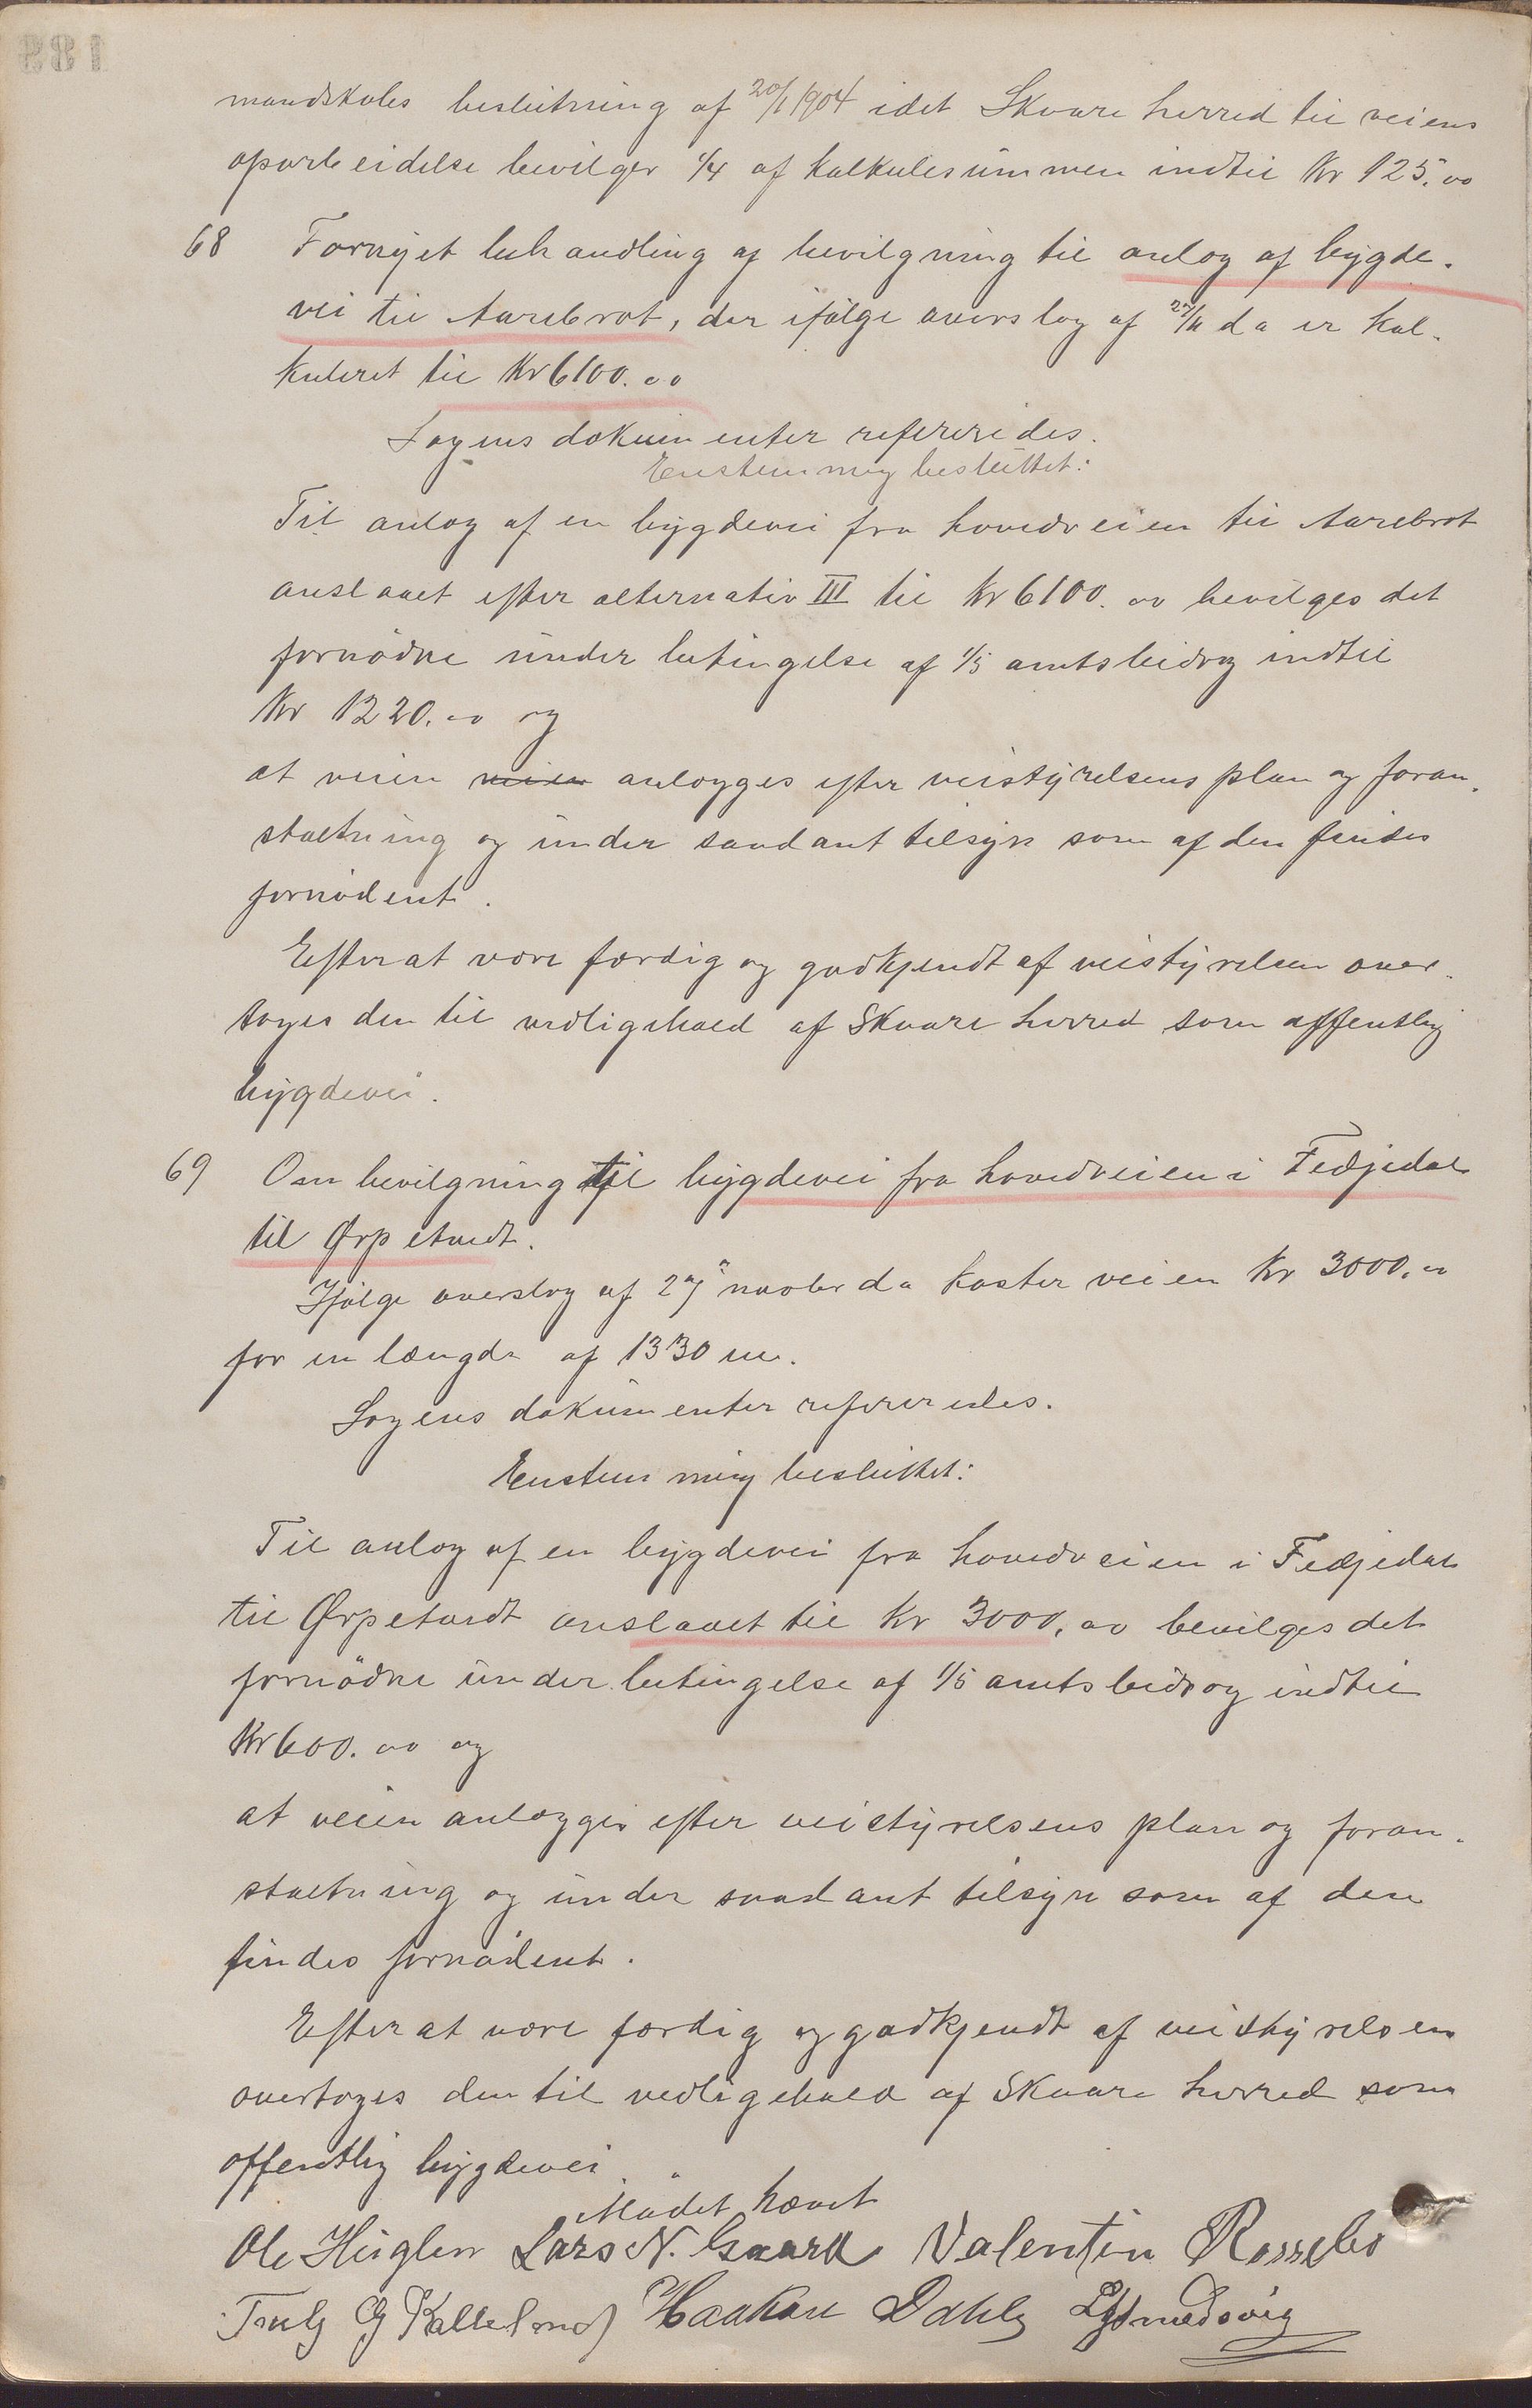 mandskabs beslutning af 20/1 1904 idet Skaare herred til veiens
oparbeidelse bevilger 1/4 af kalkulesummen indtil Kr 125.00
68 Fornyet behandling af bevilgning til anlæg af bygde-
vei til Aarebrot, der ifølge overslag af 27/11 da er kal-
kuleret til Kr 6100.00
Sagens dokumenter refereredes.
Enstemmig besluttet:
Til anlæg af en bygdevei fra hovedveien til Aarebrot
anslaaet efter alternativ III til Kr 6100.00 bevilges det
fornødne under betingelse af 1/5 amtsbidrag indtil
Kr 1220.00 og
at veien veien anlægges efter veistyrelsens plan og foran-
staltning og under saadant tilsyn som af den findes
fornødent.
Efter at være færdig og godkjendt af veistyrelsen over-
tages den til vedligehold af Skaare herred som offentlig
bygdevei.
69 Om bevilgning til bygdevei fra hovedveien i Fedjedal
til Ørpetvedt.
Ifølge overslag af 27 novbr da koster veien Kr 3000.00
for en længde af 1330 m.
Sagens dokumenter refereredes.
Enstemmig besluttet:
Til anlæg af en bygdevei fra hovedveien i Fedjedal
til Ørpetvedt anslaaet til Kr 3000,00 bevilges det
fornødne under betingelse af 1/5 amtsbidrag indtil
Kr 600.00 og
at veien anlægges efter veistyrelsens plan og foran-
staltning og under saadant tilsyn som af den
findes fornødent.
Efter at være færdig og godkjendt af veistyrelsen
overtages den til vedligehold af Skaare herred som
offentlig bygdevei.
Mødet hævet
Ole Huglen Lars N. Gaard Valentin Rossebø
Truls G Kalleland Haakon Dahle